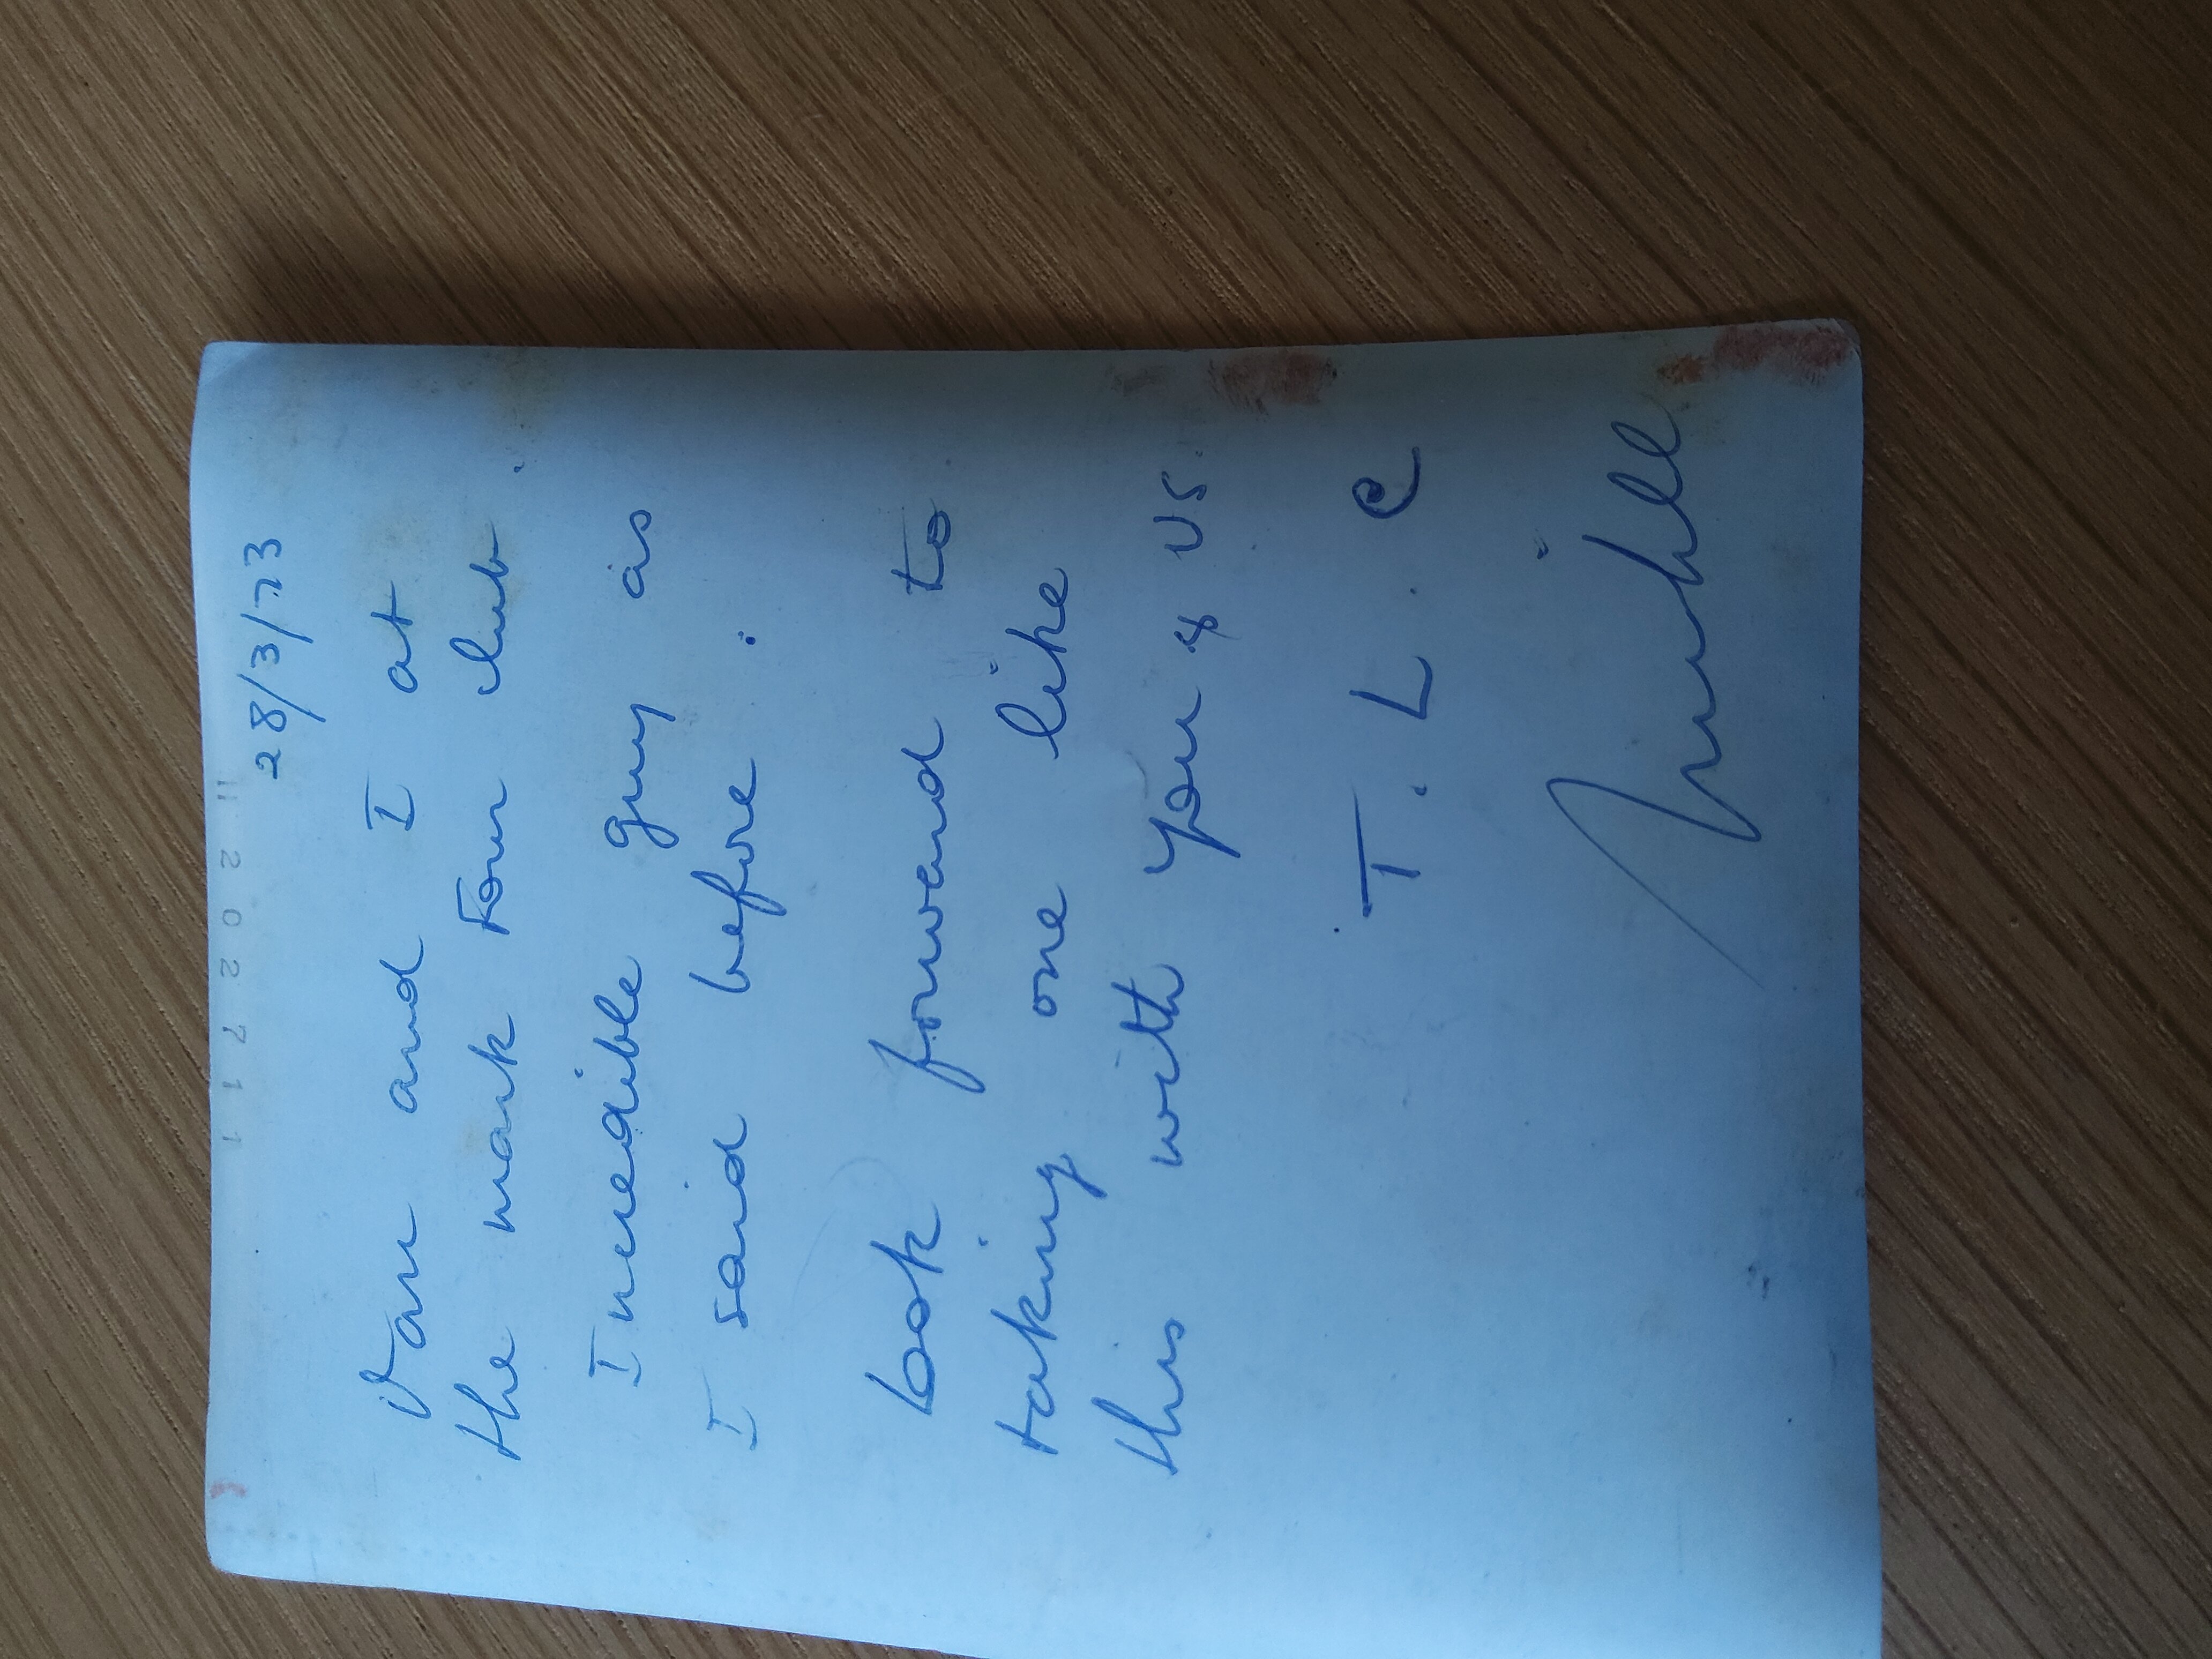 28/3/73
and I at
the mark Four club.
Incredible guy as
I said before.
Look forward to
taking one like
this with you & us.
T. L. C